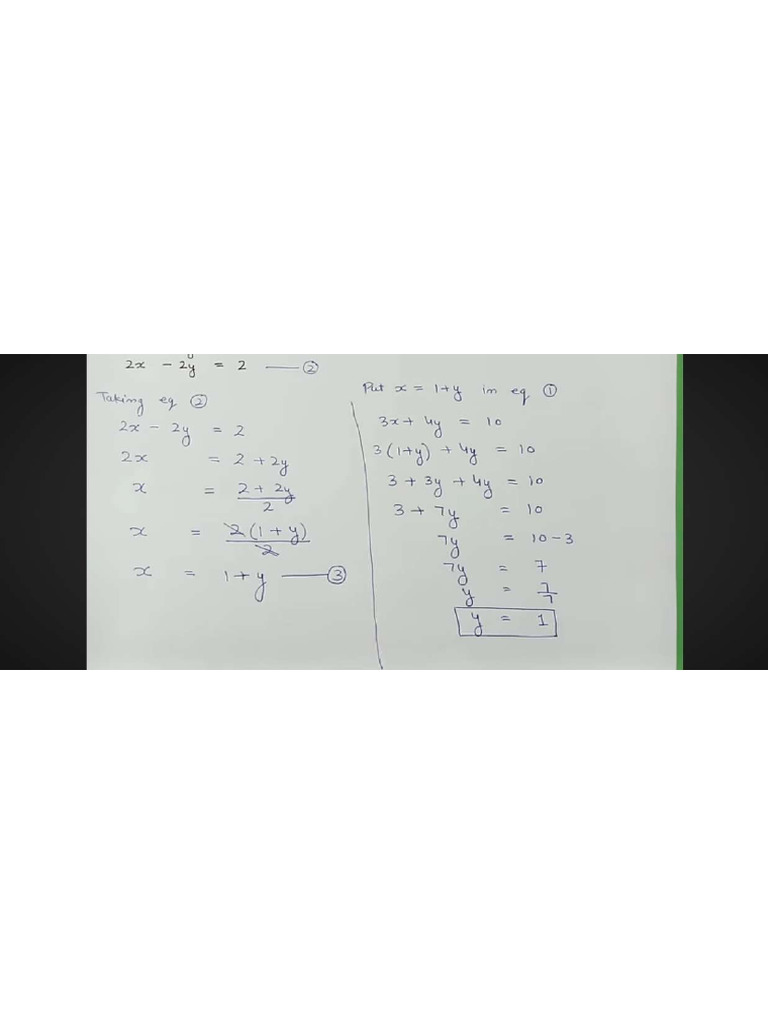 2x - 2y = 2 —— ②
Taking eq ②
2x - 2y = 2
2x = 2 + 2y
x = 2 + 2y / 2
x = 2(1 + y) / 2
x = 1 + y —— ③
Put x = 1+y in eq ①
3x + 4y = 10
3(1+y) + 4y = 10
3 + 3y + 4y = 10
3 + 7y = 10
7y = 10 - 3
7y = 7
y = 7/7
y = 1